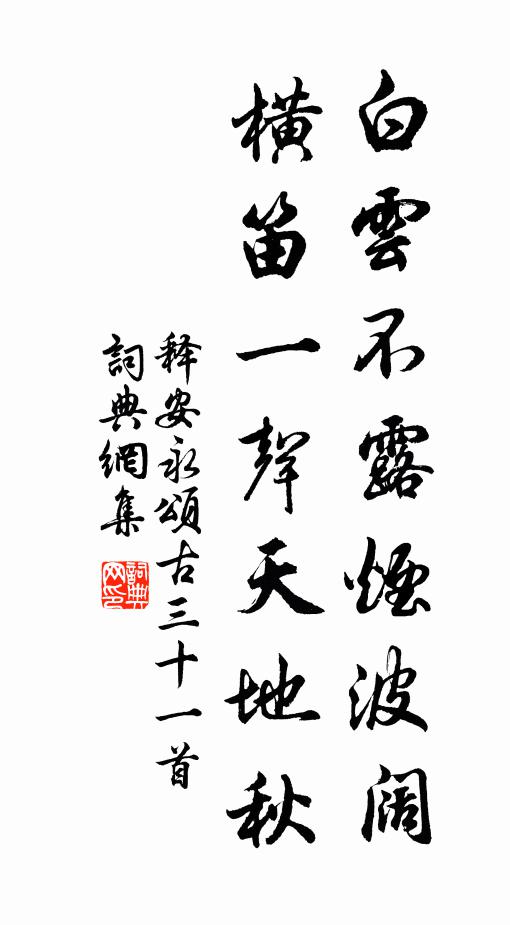 白雲不露煙波阔
橫笛一聲天地秋
释安永頌古三十一首
詞典網集
詞典网印